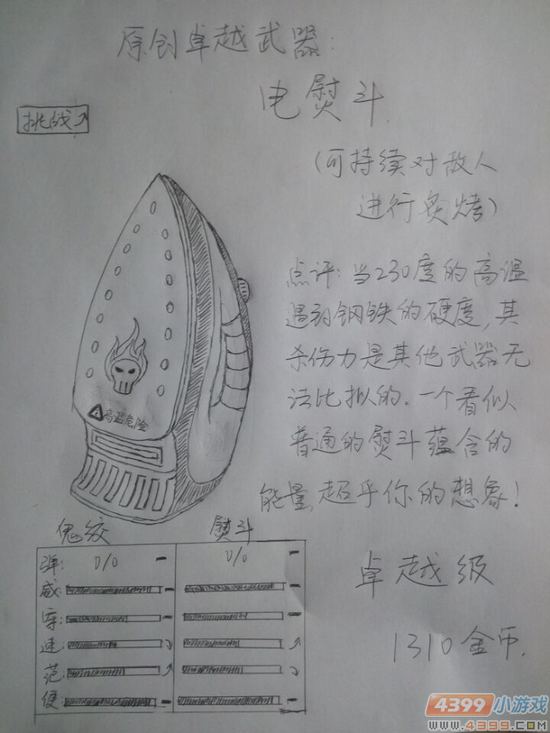 原创卓越武器:
电熨斗
挑战↗
(可持续对敌人
进行炙烤)
点评:当230度的高温
遇到钢铁的硬度,其
杀伤力是其他武器无
法比拟的.一个看似
普通的熨斗蕴含的
能量,超乎你的想象!
高温危险
鬼绞 熨斗
弹: 0/0 0/0
威:
穿:
速:
范:
便:
卓越级
1310金币.
4399小游戏
www.4399.com